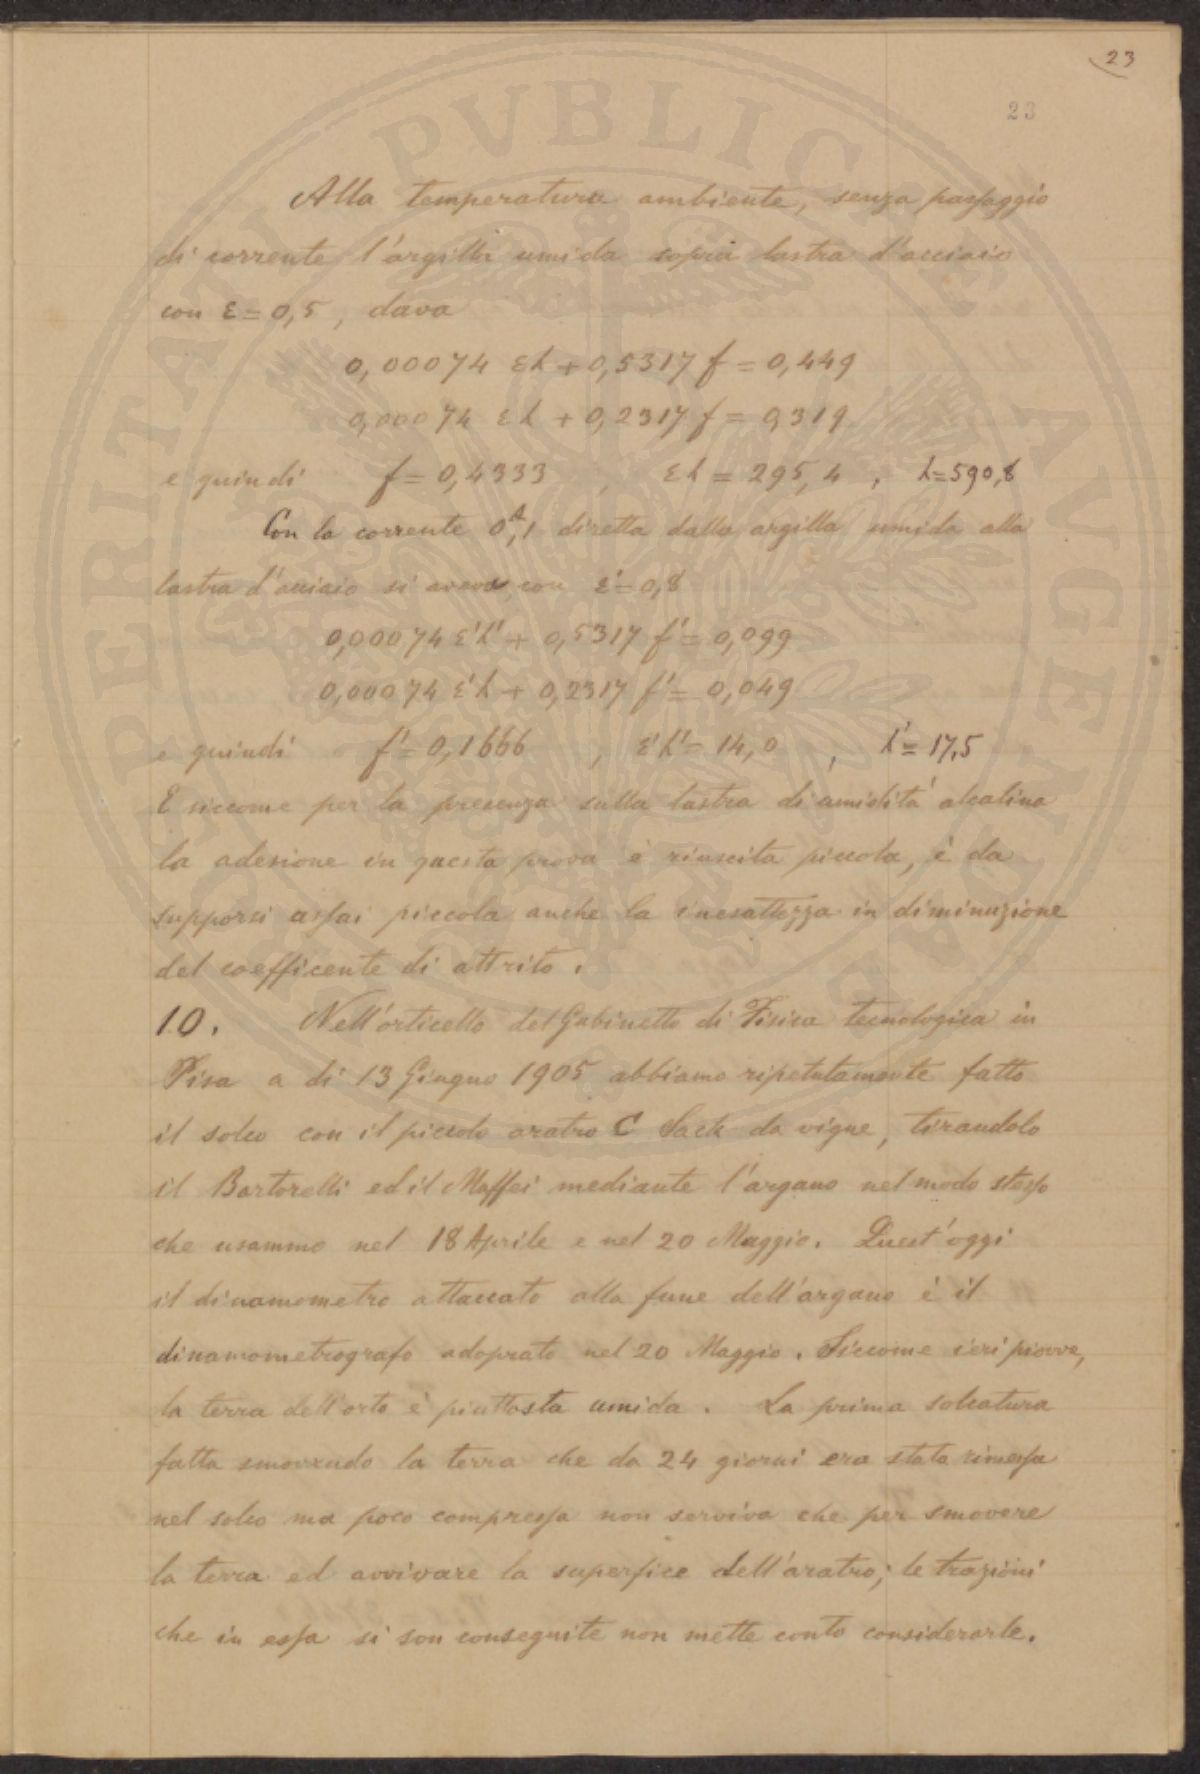 23
23
Alla temperatura ambiente, senza passaggio
di corrente l'argilla umida sopra lastra d'acciaio
con ε = 0,5, dava
0,00074 εh + 0,5317 f = 0,449
0,00074 εh + 0,2317 f = 0,319
e quindi f = 0,4333 , εh = 295,4 , h = 590,8
Con la corrente 0ᴬ,1 diretta dalla argilla umida alla
lastra d'acciaio si aveva con ε' = 0,8
0,00074 ε'h' + 0,5317 f' = 0,099
0,00074 ε'h + 0,2317 f' = 0,049
e quindi f' = 0,1666 , ε'h' = 14,0 , h' = 17,5
E siccome per la presenza sulla lastra di umidità alcalina
la adesione in questa prova è riuscita piccola, è da
supporsi assai piccola anche la inesattezza in diminuzione
del coefficente di attrito.
10. Nell'orticello del Gabinetto di Fisica tecnologica in
Pisa a dì 13 Giugno 1905 abbiamo ripetutamente fatto
il solco con il piccolo aratro C Sack da vigne, tirandolo
il Bartorelli ed il Maffei mediante l'argano nel modo stesso
che usammo nel 18 Aprile e nel 20 Maggio. Quest'oggi
il dinamometro attaccato alla fune dell'argano è il
dinamometrografo adoprato nel 20 Maggio. Siccome ieri piovve,
la terra dell'orto è piuttosta umida. La prima solcatura
fatta smovendo la terra che da 24 giorni era stata rimessa
nel solco ma poco compressa non serviva che per smovere
la terra ed avvivare la superfice dell'aratro; le trazioni
che in essa si son conseguite non mette conto considerarle.
PERITATI PVBLICAE AVGENDAE